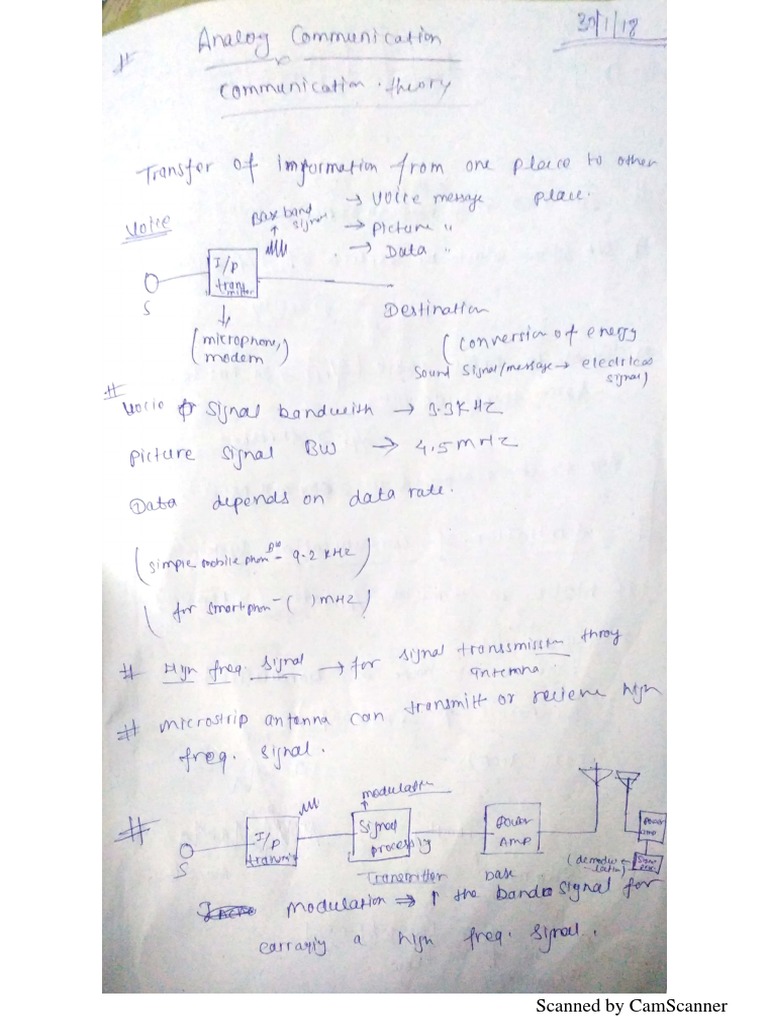 30/1/18
# Analog Communication
Communication theory
Transfer of imformation from one place to other
place.
→ Voice message
→ Picture "
→ Data "
Voice
Base band
signal
I/P
trans
mitter
S
Destination
(microphone,
modem)
(conversion of energy
Sound Signal/message → electrical
signal)
# Vocie Signal bandwith → 3.3KHz
Picture Signal BW → 4.5mHz
Data depends on data rate.
(simple mobile phon BW - 9.2 KHz)
(for smartphon - ( ) mHz)
# High freq. signal → for signal transsmission throy
antenna
# Microstrip antenna can transmitt or recieve high
freq. signal.
#
modulation
S
I/P
transmit
Signal
processig
Power
AMP
Power
amp
(demodu
lation)
Transmitter
Modulation ⇒ ↑ the base band signal for
carraying a high freq. signal.
Scanned by CamScanner